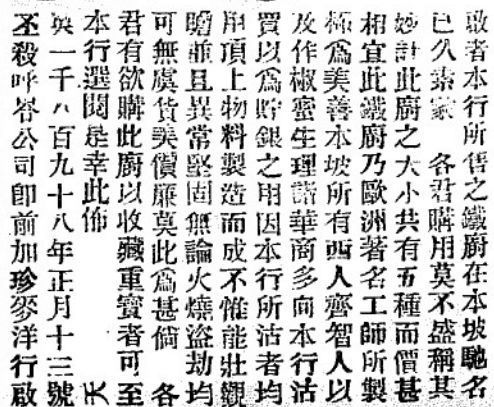 啟者本行所售之鐵廚在本坡馳名
已久素蒙　各君購用莫不盛稱其
妙計此廚之大小共有五種而價甚
相宜此鐵廚乃歐洲著名工師所製
極為美善本坡所有西人齊智人以
及作椒蜜生理諸華商多向本行沽
買以為貯銀之用因本行所沽者均
用頂上物料製造而成不惟能壯觀
瞻並且異常堅固無論火燒盜劫均
可無虞貨美價廉莫此為甚倘　各
君有欲購此廚以收藏重寶者可至
本行選閱是幸此佈　　　　　天
英一千八百九十八年正月十三號
丕殺呼峇公司即前加珍麥洋行啟